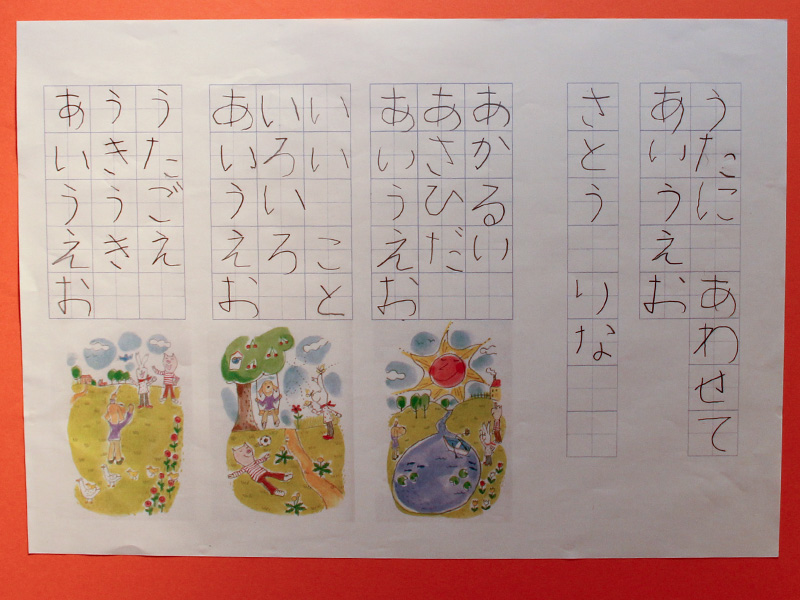 うたに あわせて
あいうえお
さとう りな
あかるい
あさひだ
あいうえお
いい こと
いろいろ
あいうえお
うたごえ
うきうき
あいうえお